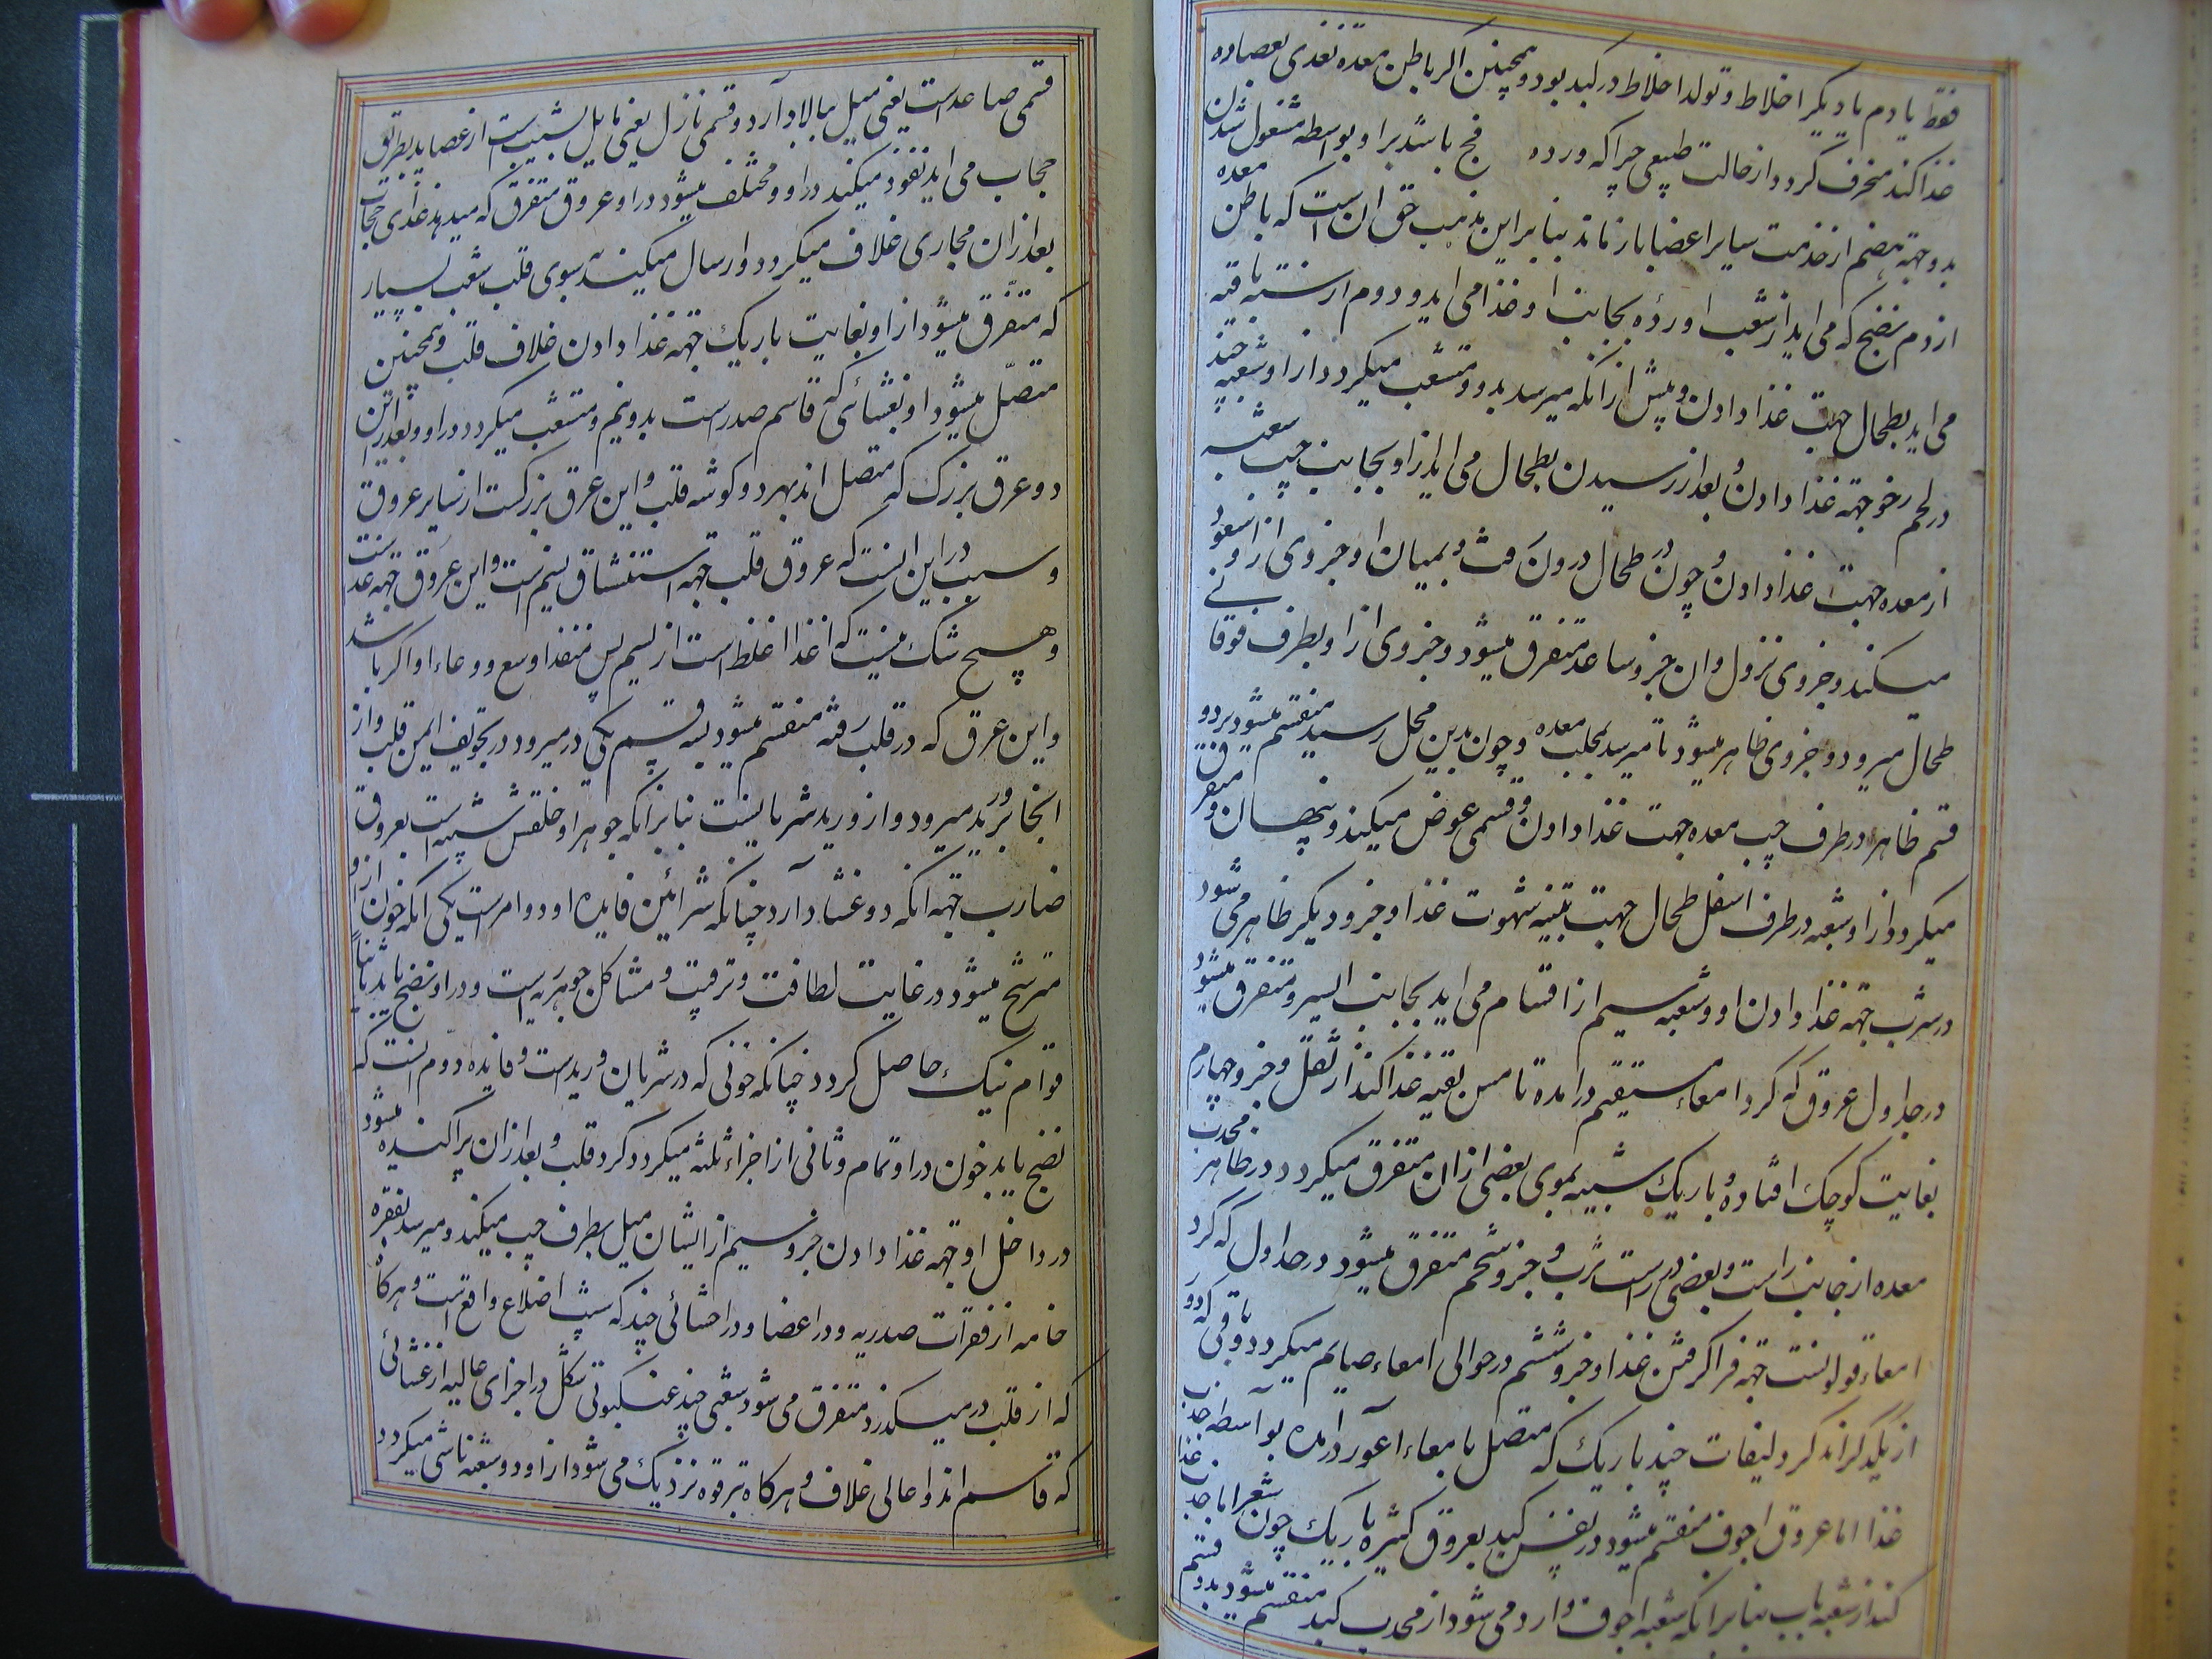 فقط یا دم یا دیگر اخلاط و تولد اخلاط در کبد بود و همچنین اکر باطن معده تغذی بعصاره
غذا کند منحرف کردد از حالت طبیعی چرا که ورده فج باشد برا و بواسطه مشغول شدن
بدو جهة هضم از خدمت سایر اعضا باز ماند بنابر این مذهب حق ان است که باطن معده
از دم نضج که می اید از شعب اورده بجانب او غذا می اید و دوم از شعبه باقیه
می اید بطحال جهت غذا دادن و پیش از انکه میرسد بدو و متشعب میکردد از او شعبه چند
در لحم رخو جهة غذا دادن و بعد از رسیدن بطحال می اید از او بجانب چپ شعبه
از معده جهت غذا دادن و چون در طحال درون رفت و بمیان او جزوی از او صعود
میکند و جزوی نزول و ان جزو صاعد متفرق میشود و جزوی از او بطرف فوقانی
طحال میرود و جزوی ظاهر میشود تا میرسد بمحدب معده و چون بدین محل رسید منقسم میشود بدو
قسم ظاهر در طرف چپ معده جهت غذا دادن و قسمی غوض میکند و پنهان و متفرق
میکردد از او شعبه در طرف اسفل طحال جهت تنبیه شهوت غذا و جزو دیکر ظاهر می شود
در ثرب جهة غذا دادن او و شعبه سیم از اقسام می اید بجانب ایسر و متفرق میشود
در جداول عروق که کرد امعاء مستقیم در امده تا مص بقیه غذا کند از ثفل و جزو چهارم
بغایت کوچک افتاده و باریک شبیه بموی بعضی از ان متفرق میکردد در ظاهر محدب
معده از جانب راست و بعضی در راست ثرب و جزو پنجم متفرق میشود در جداول که کرد
امعاء قولونست جهة فرا کرفتن غذا و جزو ششم در حوالی امعاء صایم میکردد و باقی که دو
از یکدکراند کرد لیفات چند باریک که متصل با معاء اعور در امده بواسطه جذب
غذا اما عروق اجوف منقسم میشود در نفس کبد بعروق کثیره باریک چون شعر تا جذب غذا
کند از شعبه باب بنابر انکه شعبه اجوف وارد می شود از محدب کبد منقسم میشود بدو قسم
قسمی صاعدست یعنی میل ببالا دآرد و قسمی نازل یعنی مایل بشیب است از صاعد بطریق
حجاب می اید نفوذ میکند در او و مختلف میشود در او عروق متفرق که میدهد غذای حجاب
بعد از ان مجاری غلاف میکردد و ارسال میکند بسوی قلب شعب بسیار
که متفرق میشود از او بغایت باریک جهة غذا دادن غلاف قلب و همچنین
متصل میشود او بغشائی که قاسم صدرست بدو نیم و متشعب میکردد در او و بعد از این
دو عرق بزرک که متصل اند بهر دو کوشه قلب و این عرق بزرکست از سایر عروق
و سبب در این انست که عروق قلب جهة استنشاق نسیم است و این عروق جهة غذا
و هیچ شک نیست که غذا اغلظ است از نسیم پس منفذ اوسع و وعاء او اکبر باشد
و این عرق که در قلب رفته منقسم میشود بسه قسم یکی در میرود در تجویف ایمن قلب و از
انجا بریه میرود و از ورید شریانیست بنابر انکه جوهر او خلقتش شبیه است بعروق
ضارب جهة انکه دو غشا دآرد چنانکه شرائین فایده او دو امرست یکی انکه خون از او
مترشح میشود در غایت لطافت و ترقیت و مشاکل جوهر ریه است و در او نضج یابد ثانیاً
قوام نیک حاصل کردد چنانکه خونی که در شریان وریدست و فایده دوم انست که
نضج یابد خون در او تمام و ثانی از اجزاء ثلثه میکردد کرد قلب و بعد از ان پراکنده میشود
در داخل او جهة غذا دادن جزو سیم از ایشان میل بطرف چپ میکند و میرسد بفقره
خامسه از فقرات صدریه و در اعضا و در احشائی چند که پشت اضلاع واقع است و هرکاه
که از قلب در میکذرد متفرق می شود شعبی چند عنکبوتی شکل در اجزای عالیه از غشائی
که قاسم اند و اعالی غلاف و هر کاه بترقوه نزدیک می شود از او دو شعبه ناشی میکردد